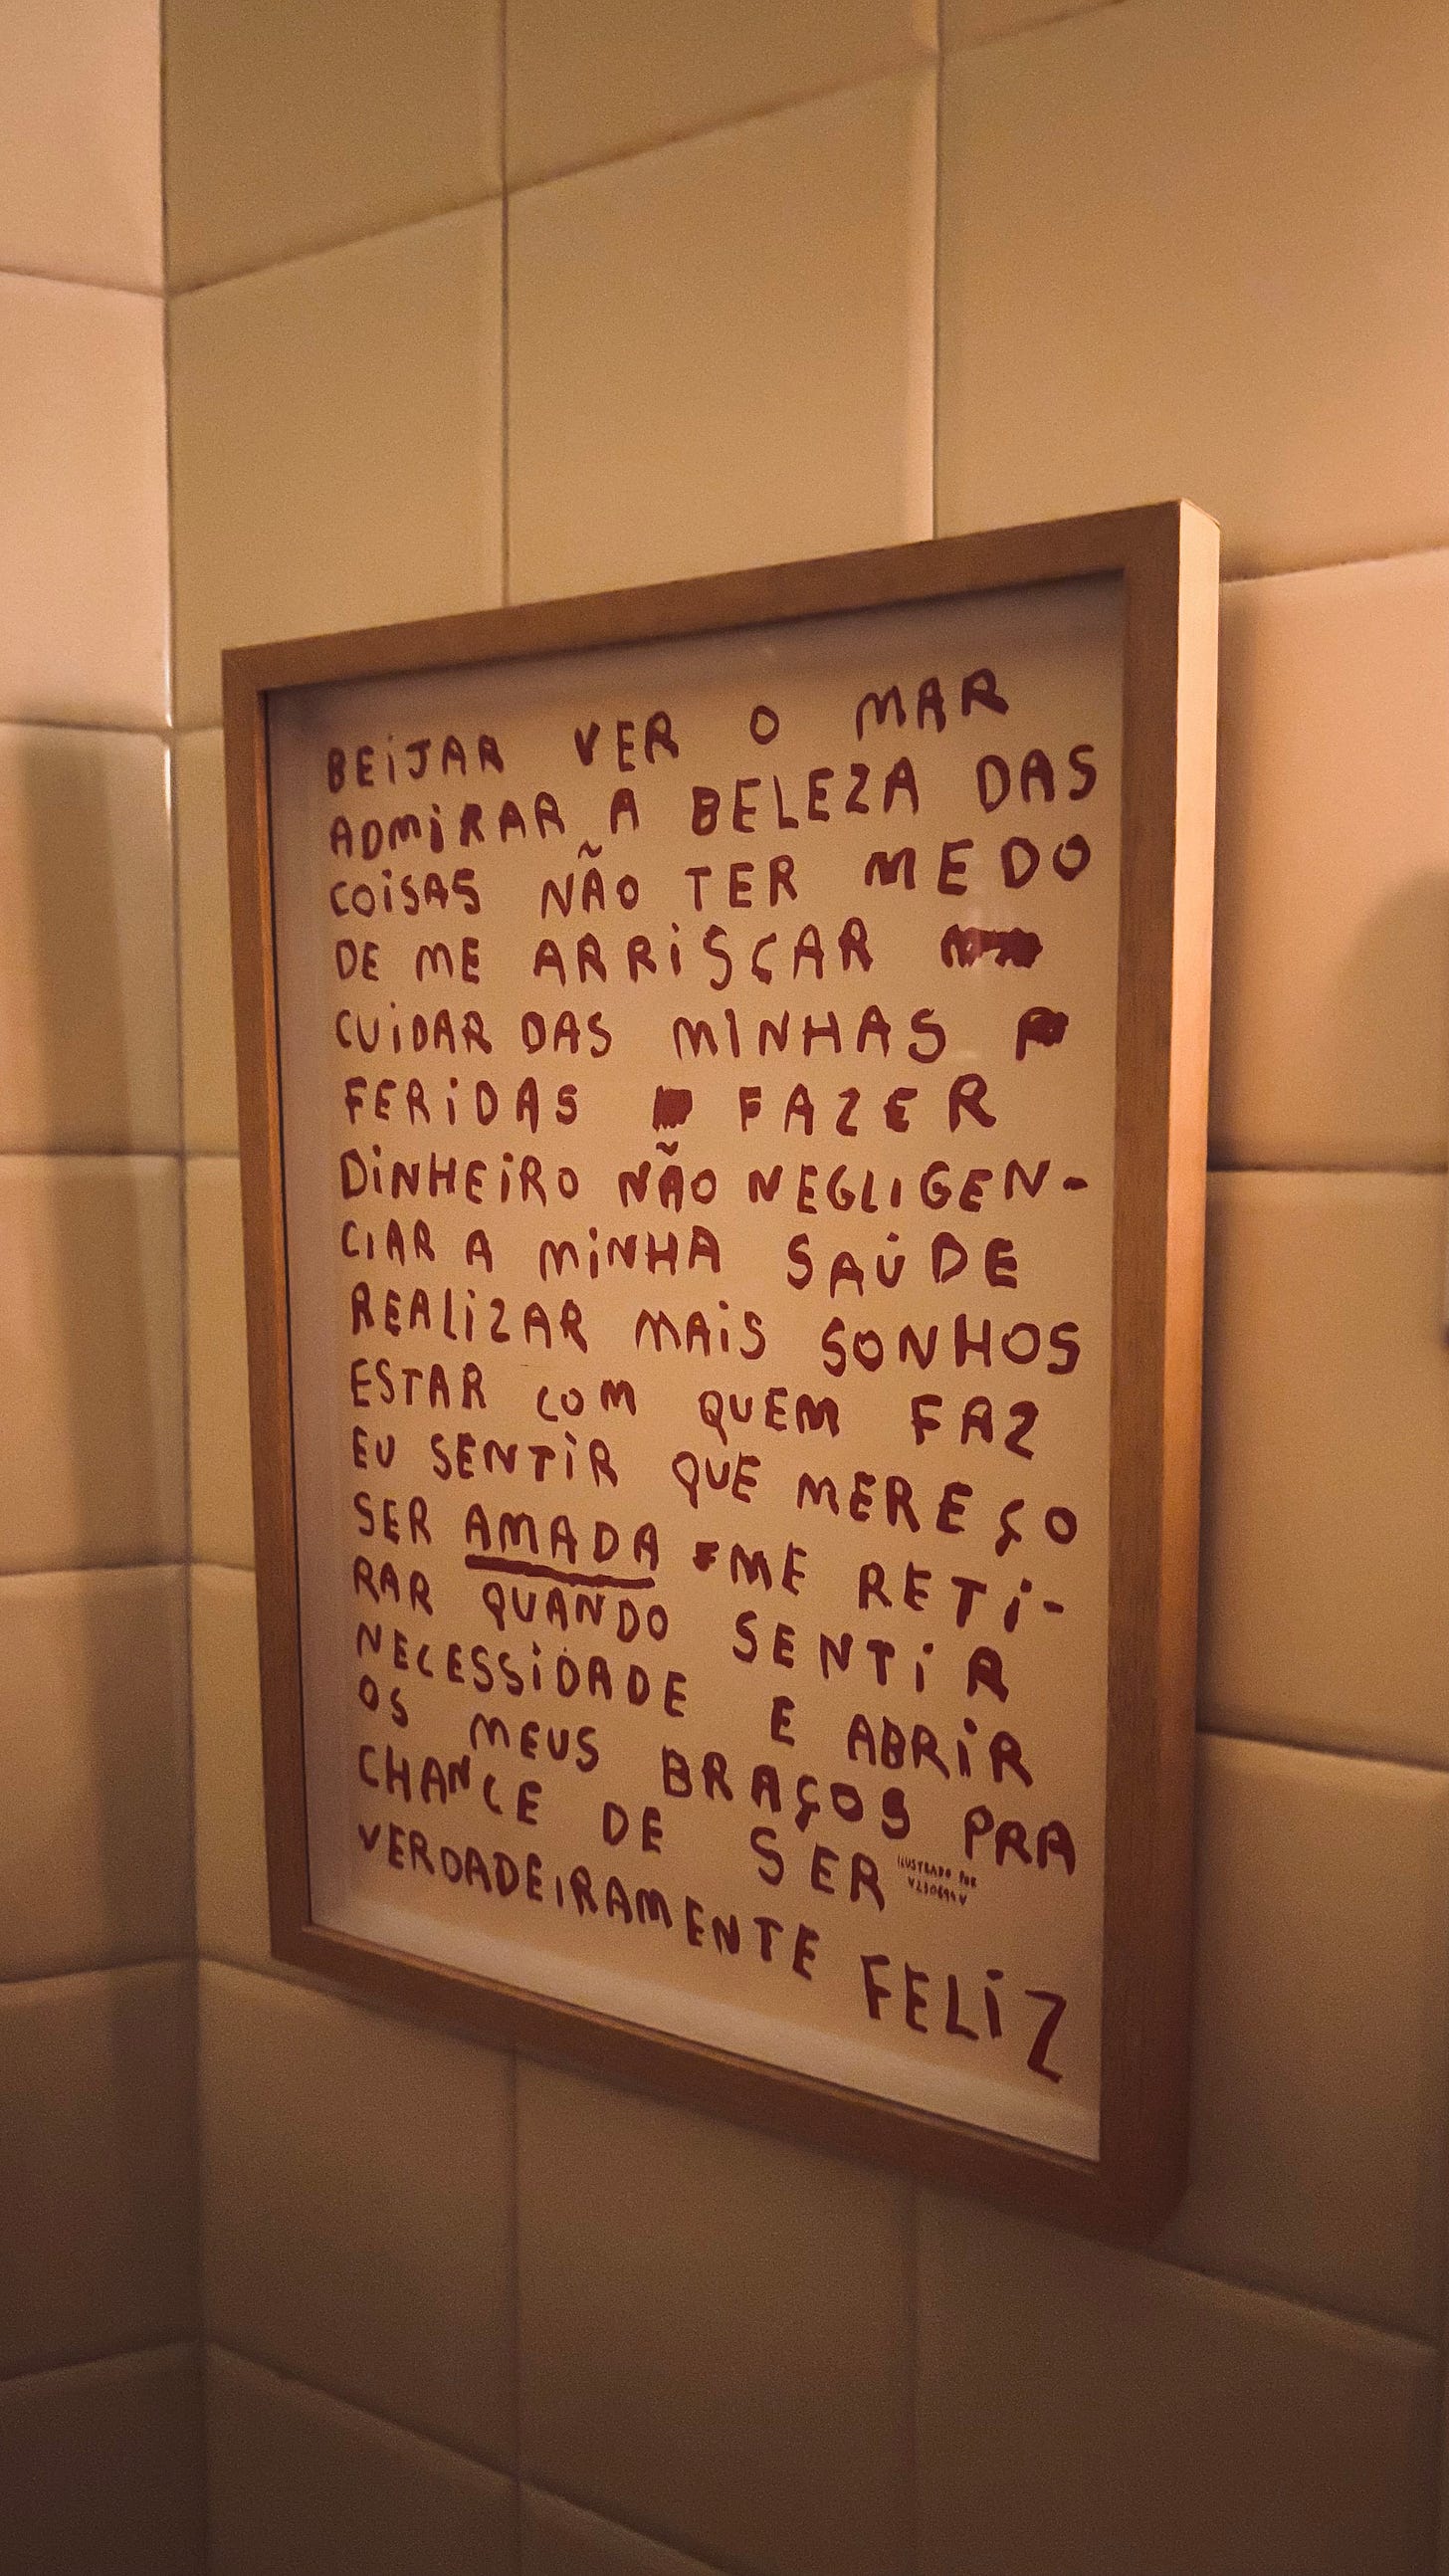 BEIJAR VER O MAR
ADMIRAR A BELEZA DAS
COISAS NÃO TER MEDO
DE ME ARRISCAR
CUIDAR DAS MINHAS
FERIDAS FAZER
DINHEIRO NÃO NEGLIGEN-
CIAR A MINHA SAÚDE
REALIZAR MAIS SONHOS
ESTAR COM QUEM FAZ
EU SENTIR QUE MEREÇO
SER AMADA ME RETI-
RAR QUANDO SENTIR
NECESSIDADE E ABRIR
OS MEUS BRAÇOS PRA
CHANCE DE SER
ILUSTRADO POR
VERDADEIRAMENTE FELIZ